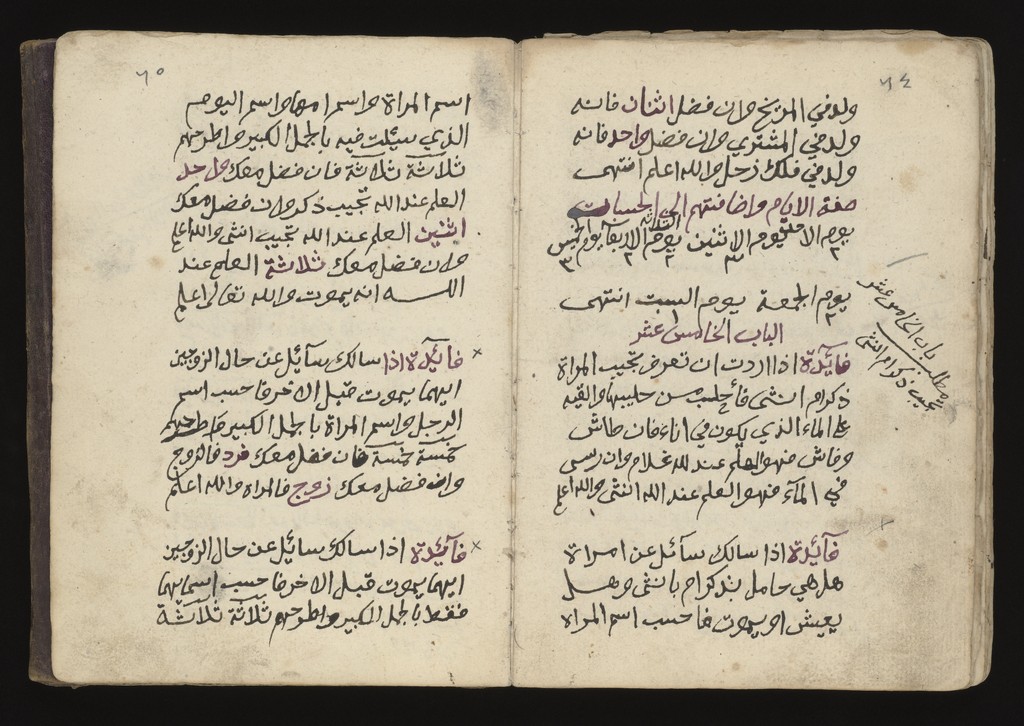 ٦٤
ولد في المريخ وان فضل اثنان فانه
ولد في المشتري وان فضل واحد فانه
ولد في فلك زحل والله اعلم انتهى
صفة الايام واضافتهم الي الحساب
يوم الاحد يوم الاثنين يوم الثلاثة يوم الاربعا يوم الخميس
٢ ٣ ٢ ٢ ٣
يوم الجمعة يوم السبت انتهى
٢ ١
الباب الخامس عشر
مطلب باب الخامس عشر
بجيب ذكر ام انثى
فايدة اذا اردت ان تعرف تجيب المراة
ذكر ام انثى فأحلب من حليبها والقيه
علي الماء الذي يكون في اناء فان طاش
وفاش فهو العلم عند لله غلام وان رسي
في المآء فهو العلم عند الله انثى والله اعلم
فآيدة اذا سالك سآئل عن امراة
هل هي حامل بذكر ام بانثى وهل
يعيش او يموت فاحسب اسم المراة
٦٥
اسم المراة واسم امها واسم اليوم
الذي سيلت فيه بالجمل الكبير واطرحهم
ثلاثة ثلاثة فان فضل معك واحد
العلم عند الله تجيب ذكر وان فضل معك
اثنين العلم عند الله تجيب انثى والله اعلم
وان فضل معك ثلاثة العلم عند
اللـه انه يموت والله تعالى اعلم
فآئدة اذا سالك سآيل عن حال الزوجين
ايهما يموت قبل الاخر فاحسب اسم
الرجل واسم المراة بالجمل الكبير فاطرحهم
خمسة خمسة فان فضل معك فرد فالزوج
وان فضل معك زوج فالمراه والله اعلم
فآئدة اذا سالك سآيل عن حال الزوجين
ايهما يموت قبل الاخر فاحسب اسمايهما
فقط بالجمل الكبير واطرحهم ثلاثة ثلاثة